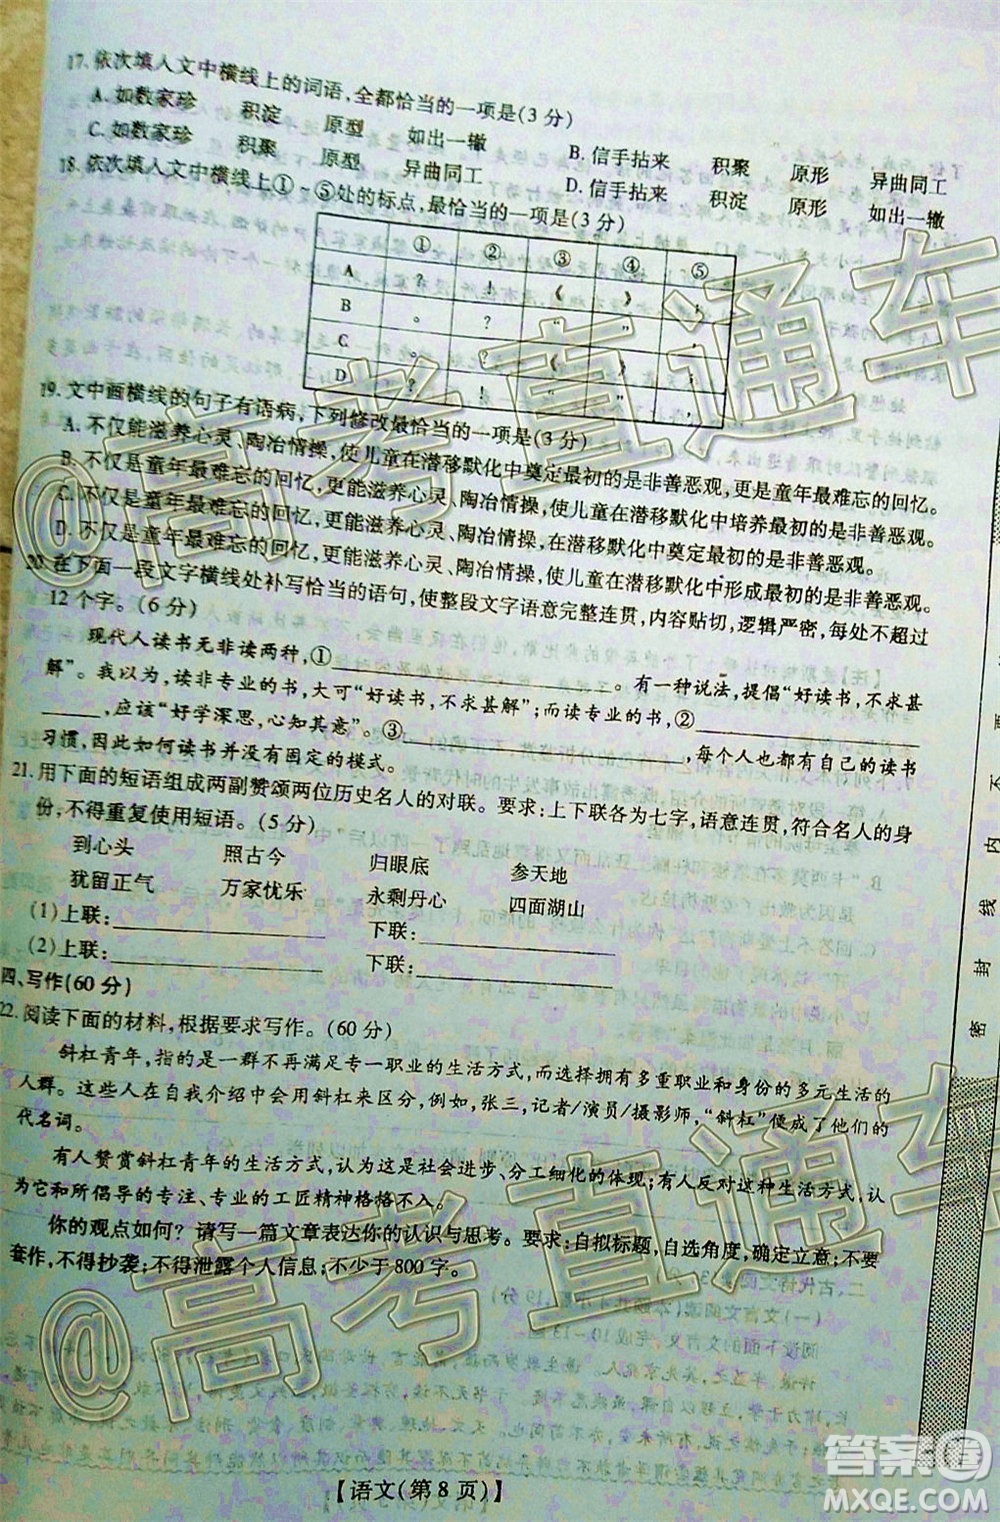 17. 依次填入文中横线上的词语,全都恰当的一项是(3 分)
A. 如数家珍 积淀 原型 如出一辙
B. 信手拈来 积聚 原形 异曲同工
C. 如数家珍 积聚 原型 异曲同工
D. 信手拈来 积淀 原形 如出一辙
18. 依次填入文中横线上①~⑤处的标点,最恰当的一项是(3 分)
① ② ③ ④ ⑤
A
B
C
D
19. 文中画横线的句子有语病,下列修改最恰当的一项是(3 分)
A. 不仅能滋养心灵、陶冶情操,使儿童在潜移默化中奠定最初的是非善恶观,更是童年最难忘的回忆。
B. 不仅是童年最难忘的回忆,更能滋养心灵、陶冶情操,使儿童在潜移默化中培养最初的是非善恶观。
C. 不仅是童年最难忘的回忆,更能滋养心灵、陶冶情操,使儿童在潜移默化中奠定最初的是非善恶观。
D. 不仅是童年最难忘的回忆,更能滋养心灵、陶冶情操,使儿童在潜移默化中形成最初的是非善恶观。
20. 在下面一段文字横线处补写恰当的语句,使整段文字语意完整连贯,内容贴切,逻辑严密,每处不超过
12 个字。(6 分)
现代人读书无非读两种,①____________。有一种说法,提倡“好读书,不求甚
解”。我以为,读非专业的书,大可“好读书,不求甚解”;而读专业的书,②________
______,应该“好学深思,心知其意”。③____________,每个人都有自己的读书
习惯,因此如何读书并没有固定的模式。
21. 用下面的短语组成两副赞颂两位历史名人的对联。要求:上下联各为七字,语意连贯,符合名人的身
份,不得重复使用短语。(5 分)
到心头 照古今 归眼底 参天地
犹留正气 万家忧乐 永剩丹心 四面湖山
(1)上联:____________ 下联:____________
(2)上联:____________ 下联:____________
四、写作(60 分)
22. 阅读下面的材料,根据要求写作。(60 分)
斜杠青年,指的是一群不再满足专一职业的生活方式,而选择拥有多重职业和身份的多元生活的
人群。这些人在自我介绍中会用斜杠来区分,例如,张三,记者/演员/摄影师,“斜杠”便成了他们的
代名词。
有人赞赏斜杠青年的生活方式,认为这是社会进步、分工细化的体现;有人反对这种生活方式,认
为它和所倡导的专注、专业的工匠精神格格不入。
你的观点如何?请写一篇文章表达你的认识与思考。要求:自拟标题,自选角度,确定立意;不要
套作,不得抄袭;不得泄露个人信息;不少于 800 字。
【语文(第 8 页)】
密 封 线 内 不
@高考直通车
@高考直通车
答案圈
MXQE.COM